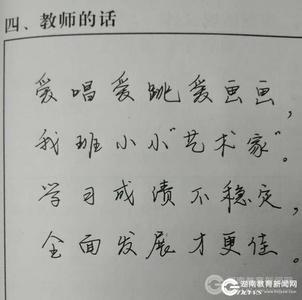 四、教师的话
爱唱爱跳爱画画，
我班小小“艺术家”。
学习成绩不稳定，
全面发展才更佳。
湖南教育新闻网